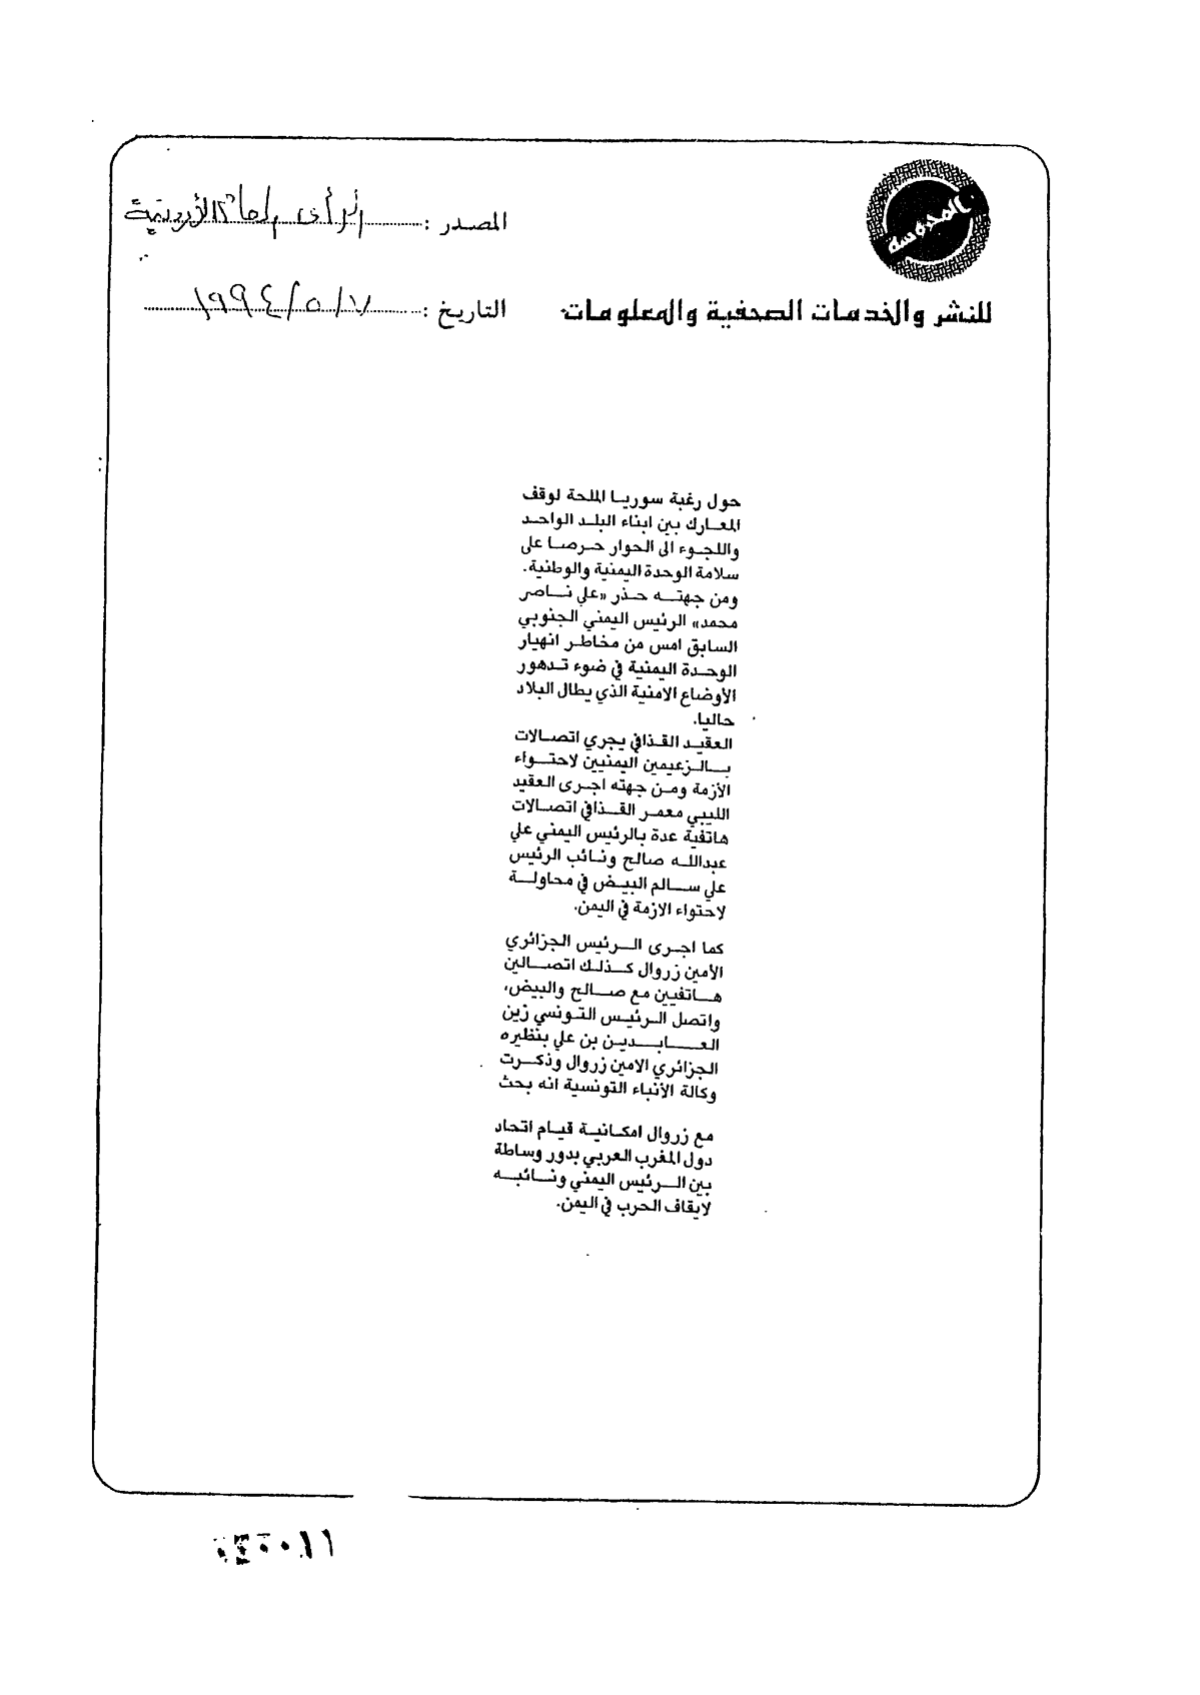 المحروسة
للنشر والخدمات الصحفية والمعلومات
المصدر : الرأى العام الأردنية
التاريخ : ١٩٩٤/٥/٧
حول رغبة سوريا الملحة لوقف
المعارك بين ابناء البلد الواحد
واللجوء الى الحوار حرصا على
سلامة الوحدة اليمنية والوطنية.
ومن جهته حذر «علي ناصر
محمد» الرئيس اليمني الجنوبي
السابق امس من مخاطر انهيار
الوحدة اليمنية في ضوء تدهور
الأوضاع الامنية الذي يطال البلاد
حاليا.
العقيد القذافي يجري اتصالات
بالزعيمين اليمنيين لاحتواء
الأزمة ومن جهته اجرى العقيد
الليبي معمر القذافي اتصالات
هاتفية عدة بالرئيس اليمني علي
عبدالله صالح ونائب الرئيس
علي سالم البيض في محاولة
لاحتواء الازمة في اليمن.
كما اجرى الرئيس الجزائري
الأمين زروال كذلك اتصالين
هاتفيين مع صالح والبيض،
واتصل الرئيس التونسي زين
العابدين بن علي بنظيره
الجزائري الامين زروال وذكرت
وكالة الأنباء التونسية انه بحث
مع زروال امكانية قيام اتحاد
دول المغرب العربي بدور وساطة
بين الرئيس اليمني ونائبه
لايقاف الحرب في اليمن.